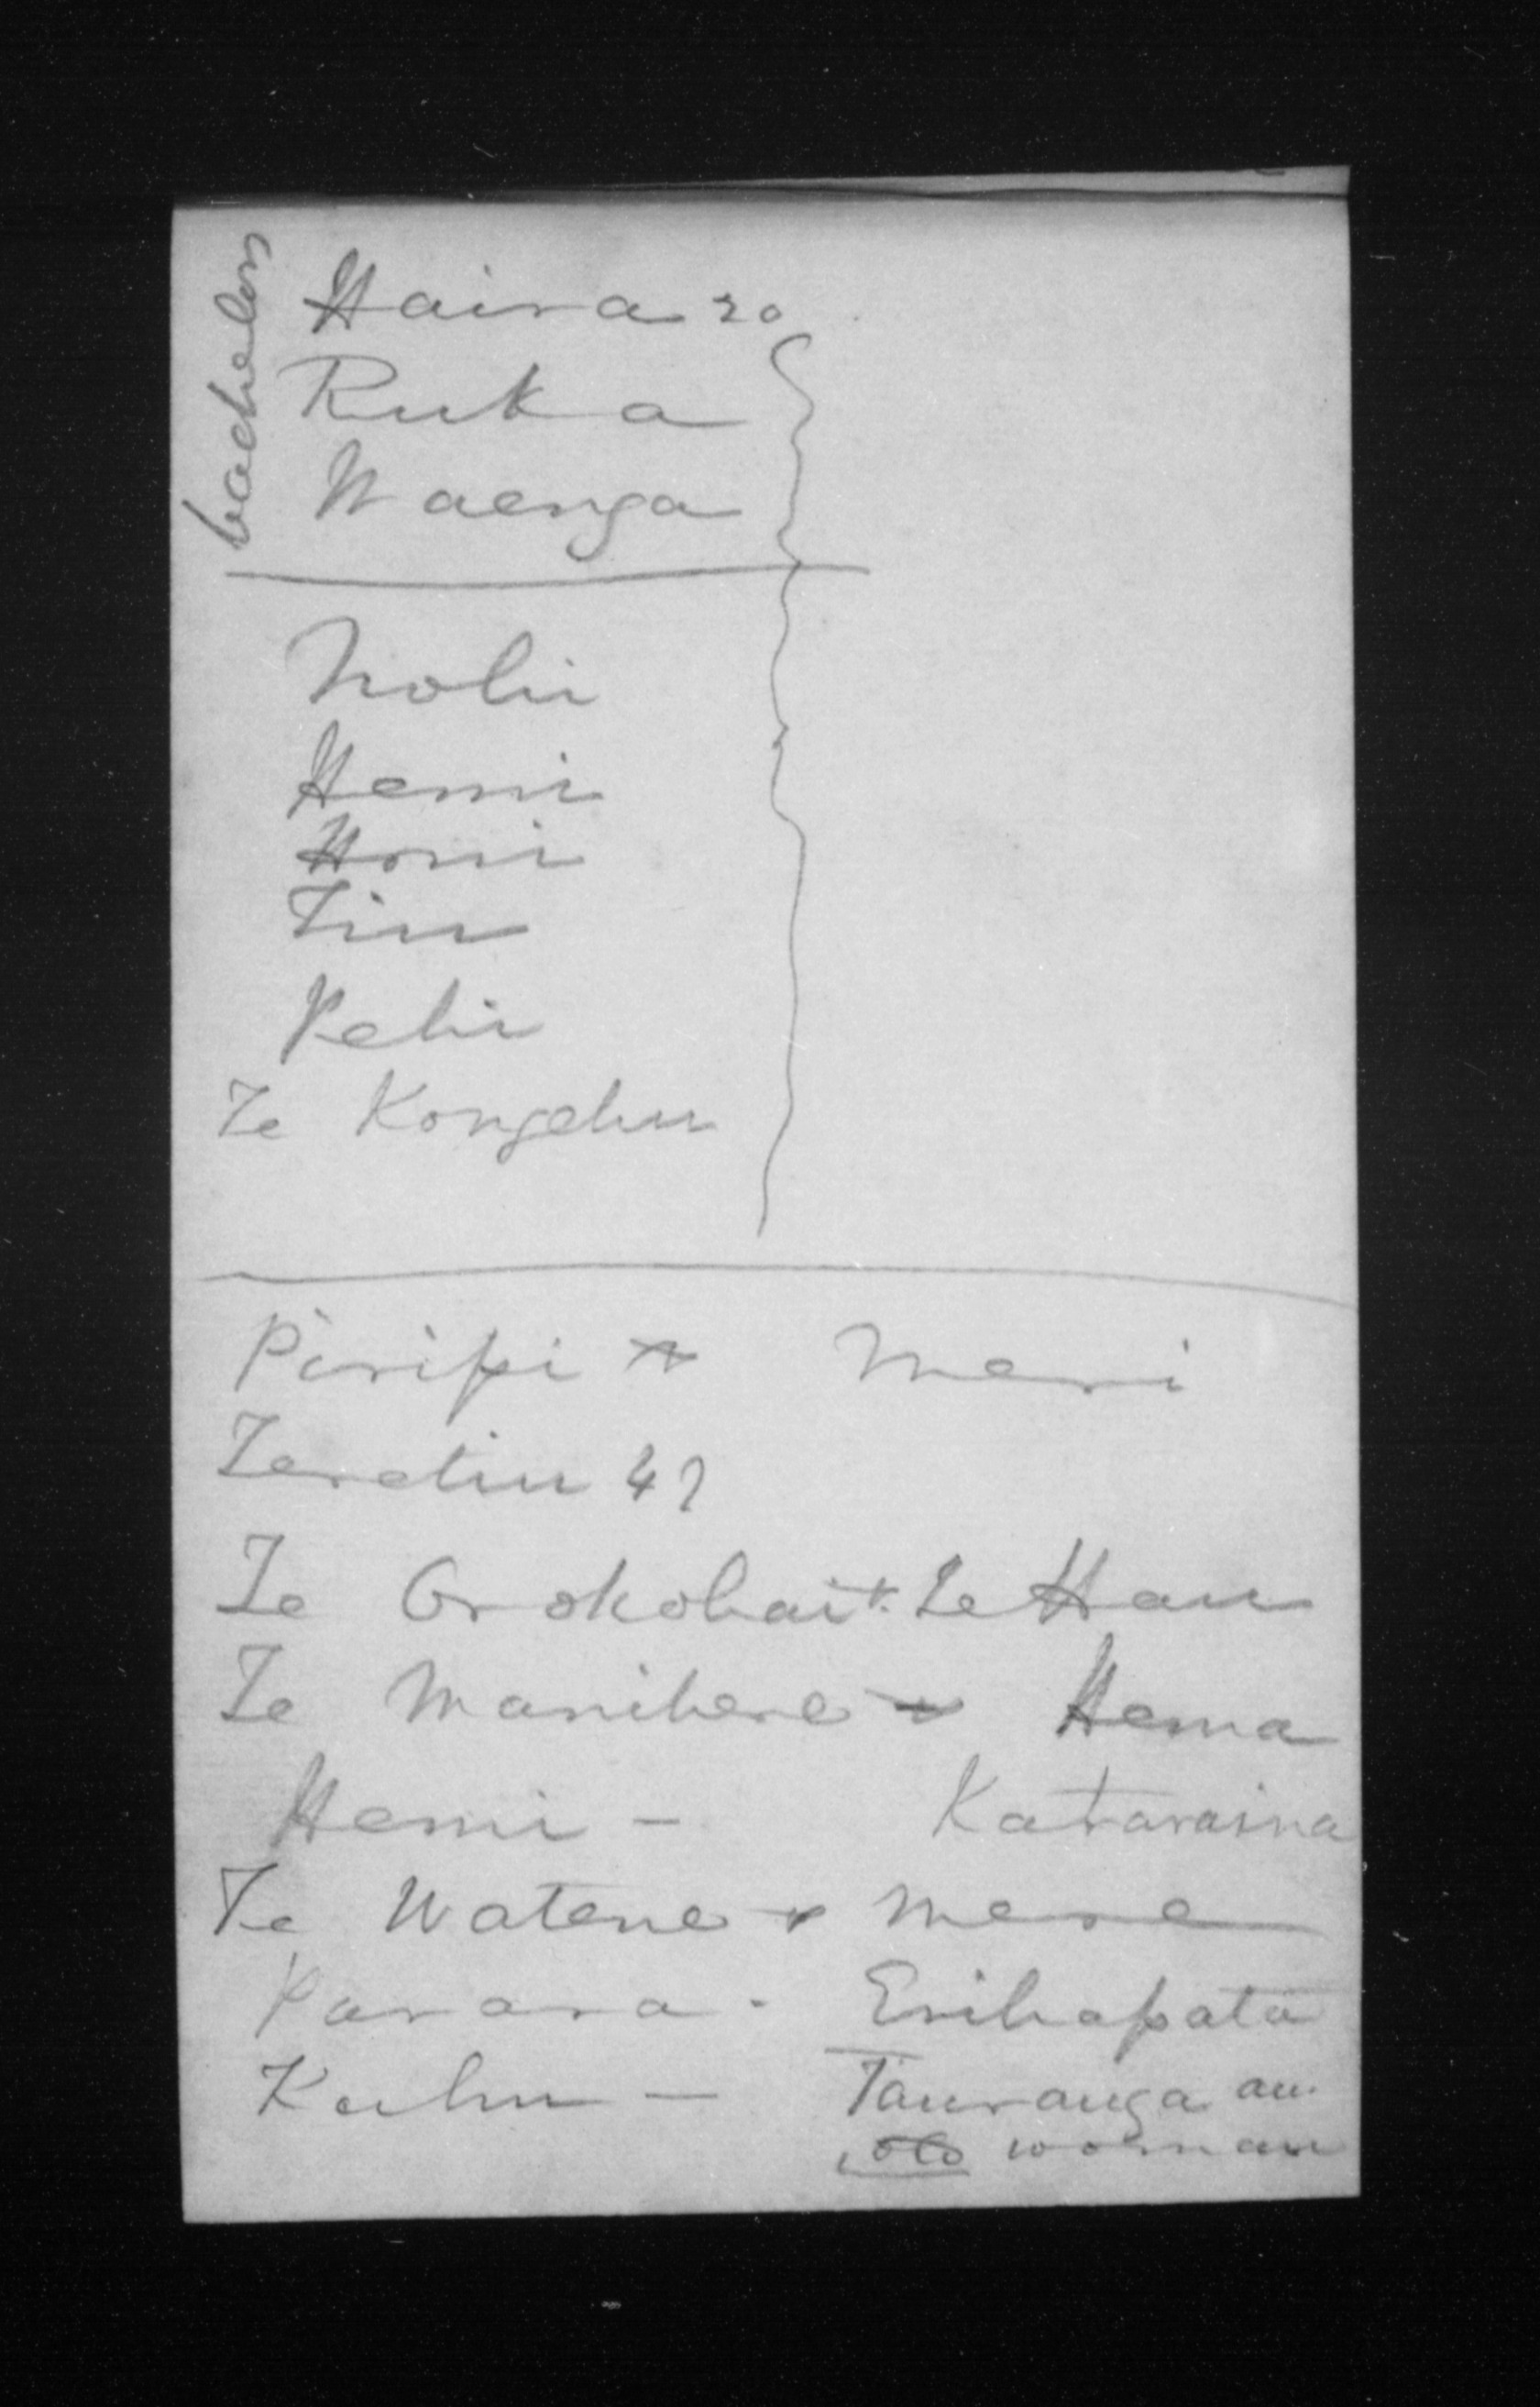 bachelors
Haira 20
Ruka
Waenga
Hemi
Honi
Tiu
Pehi
Te Kongehu
Piripi + Meri
Teretiu 42
Te Orokohai + Te Hau
Te Manihere + Hema
Hemi - Kataraina
Te Watene + Mere
Parara - Erihapata
Kuhu - Tauranga an
old woman